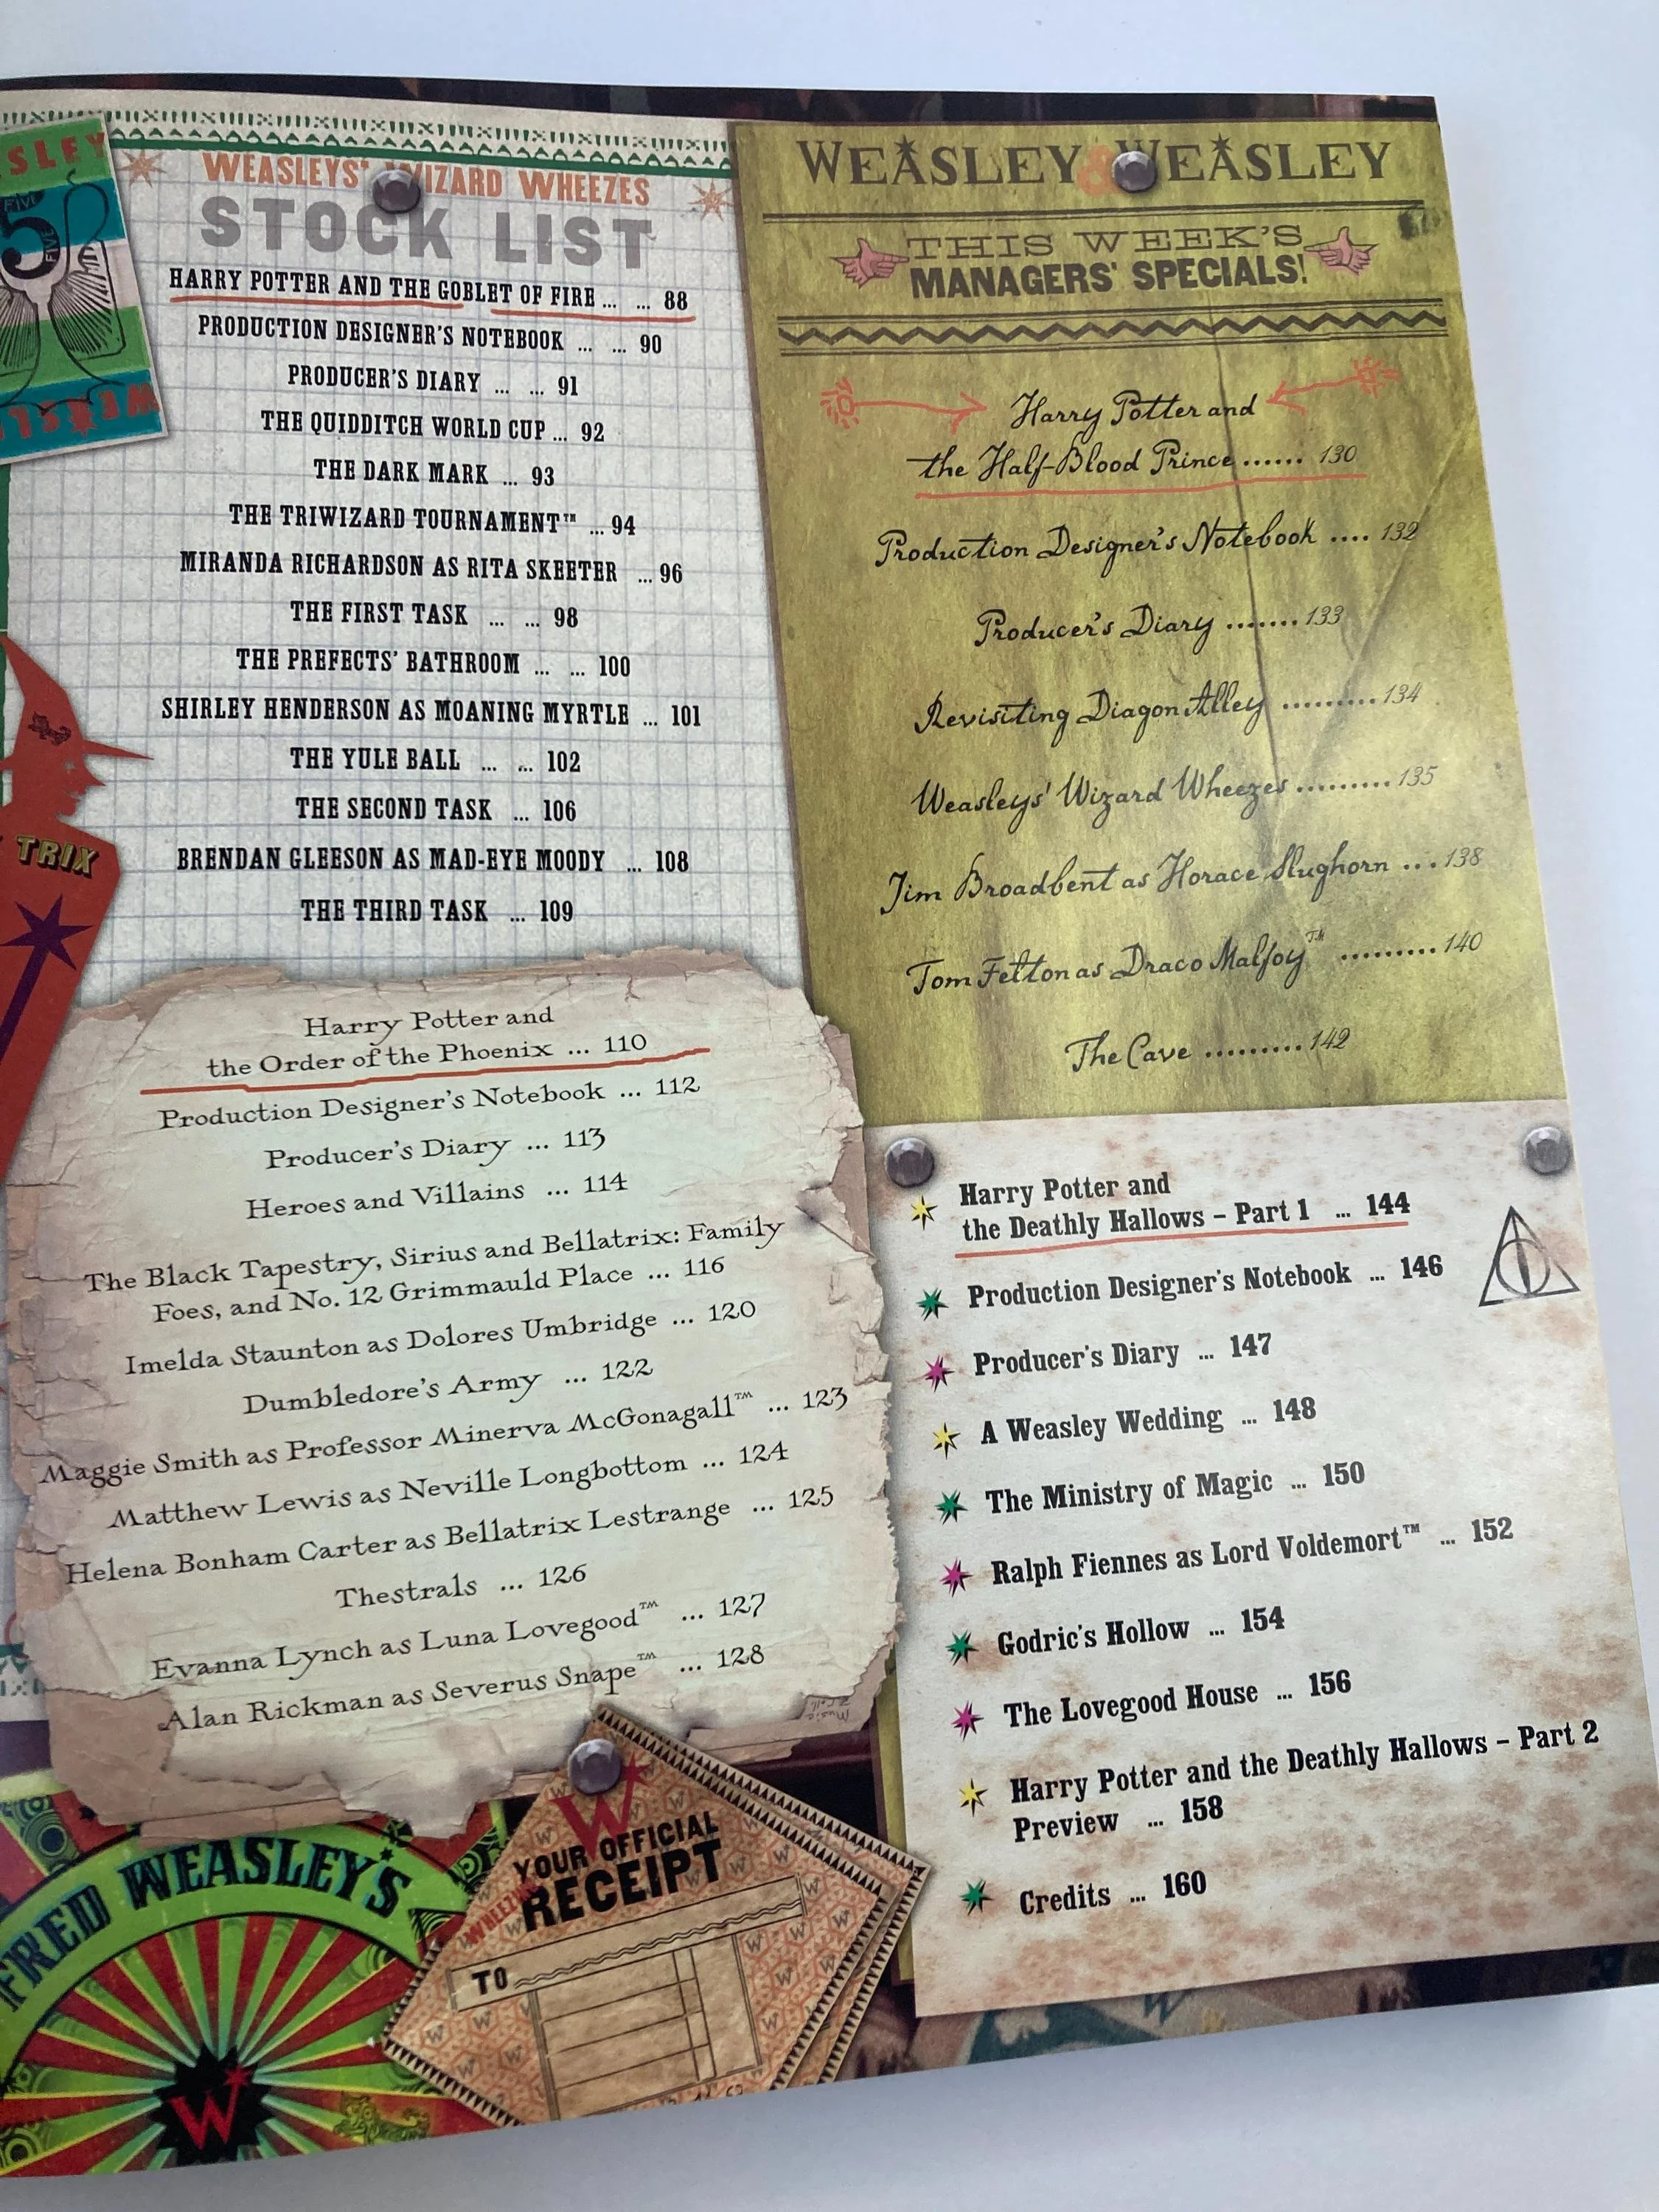 WEASLEY
FIVE
5
FIVE
TRIX
WEASLEYS' WIZARD WHEEZES
STOCK LIST
HARRY POTTER AND THE GOBLET OF FIRE ... ... 88
PRODUCTION DESIGNER'S NOTEBOOK ... ... 90
PRODUCER'S DIARY ... ... 91
THE QUIDDITCH WORLD CUP ... 92
THE DARK MARK ... 93
THE TRIWIZARD TOURNAMENT™ ... 94
MIRANDA RICHARDSON AS RITA SKEETER ... 96
THE FIRST TASK ... ... 98
THE PREFECTS' BATHROOM ... ... 100
SHIRLEY HENDERSON AS MOANING MYRTLE ... 101
THE YULE BALL ... ... 102
THE SECOND TASK ... 106
BRENDAN GLEESON AS MAD-EYE MOODY ... 108
THE THIRD TASK ... 109
Harry Potter and
the Order of the Phoenix ... 110
Production Designer's Notebook ... 112
Producer's Diary ... 113
Heroes and Villains ... 114
The Black Tapestry, Sirius and Bellatrix: Family
Foes, and No. 12 Grimmauld Place ... 116
Imelda Staunton as Dolores Umbridge ... 120
Dumbledore's Army ... 122
Maggie Smith as Professor Minerva McGonagall™ ... 123
Matthew Lewis as Neville Longbottom ... 124
Helena Bonham Carter as Bellatrix Lestrange ... 125
Thestrals ... 126
Evanna Lynch as Luna Lovegood™ ... 127
Alan Rickman as Severus Snape™ ... 128
FRED WEASLEY'S
W
W
YOUR OFFICIAL
WHEEZING
RECEIPT
TO
WEASLEY & WEASLEY
THIS WEEK'S
MANAGERS' SPECIALS!
Harry Potter and
the Half-Blood Prince ...... 130
Production Designer's Notebook .... 132
Producer's Diary ....... 133
Revisiting Diagon Alley ......... 134
Weasleys' Wizard Wheezes ......... 135
Jim Broadbent as Horace Slughorn ... 138
Tom Felton as Draco Malfoy™ ......... 140
The Cave ......... 142
Harry Potter and
the Deathly Hallows – Part 1 ... 144
Production Designer's Notebook ... 146
Producer's Diary ... 147
A Weasley Wedding ... 148
The Ministry of Magic ... 150
Ralph Fiennes as Lord Voldemort™ ... 152
Godric's Hollow ... 154
The Lovegood House ... 156
Harry Potter and the Deathly Hallows – Part 2
Preview ... 158
Credits ... 160